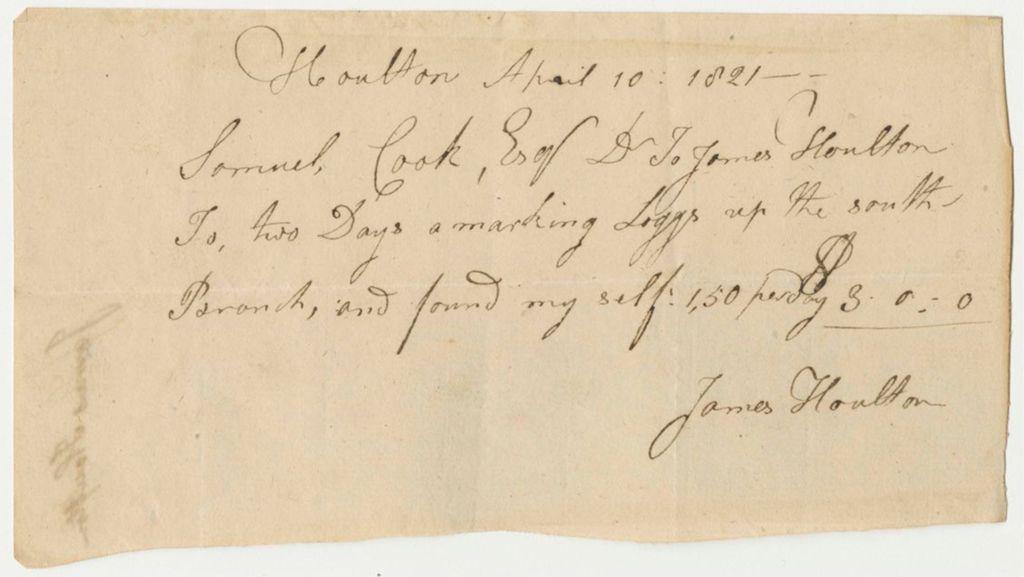 Houlton April 10: 1821 — -
Samuel Cook, Esqr Dr To James Houlton
To, two Days a marking Loggs up the south
Branch, and found my self: 1,50 per Day $ 3. 0 - 0
James Houlton